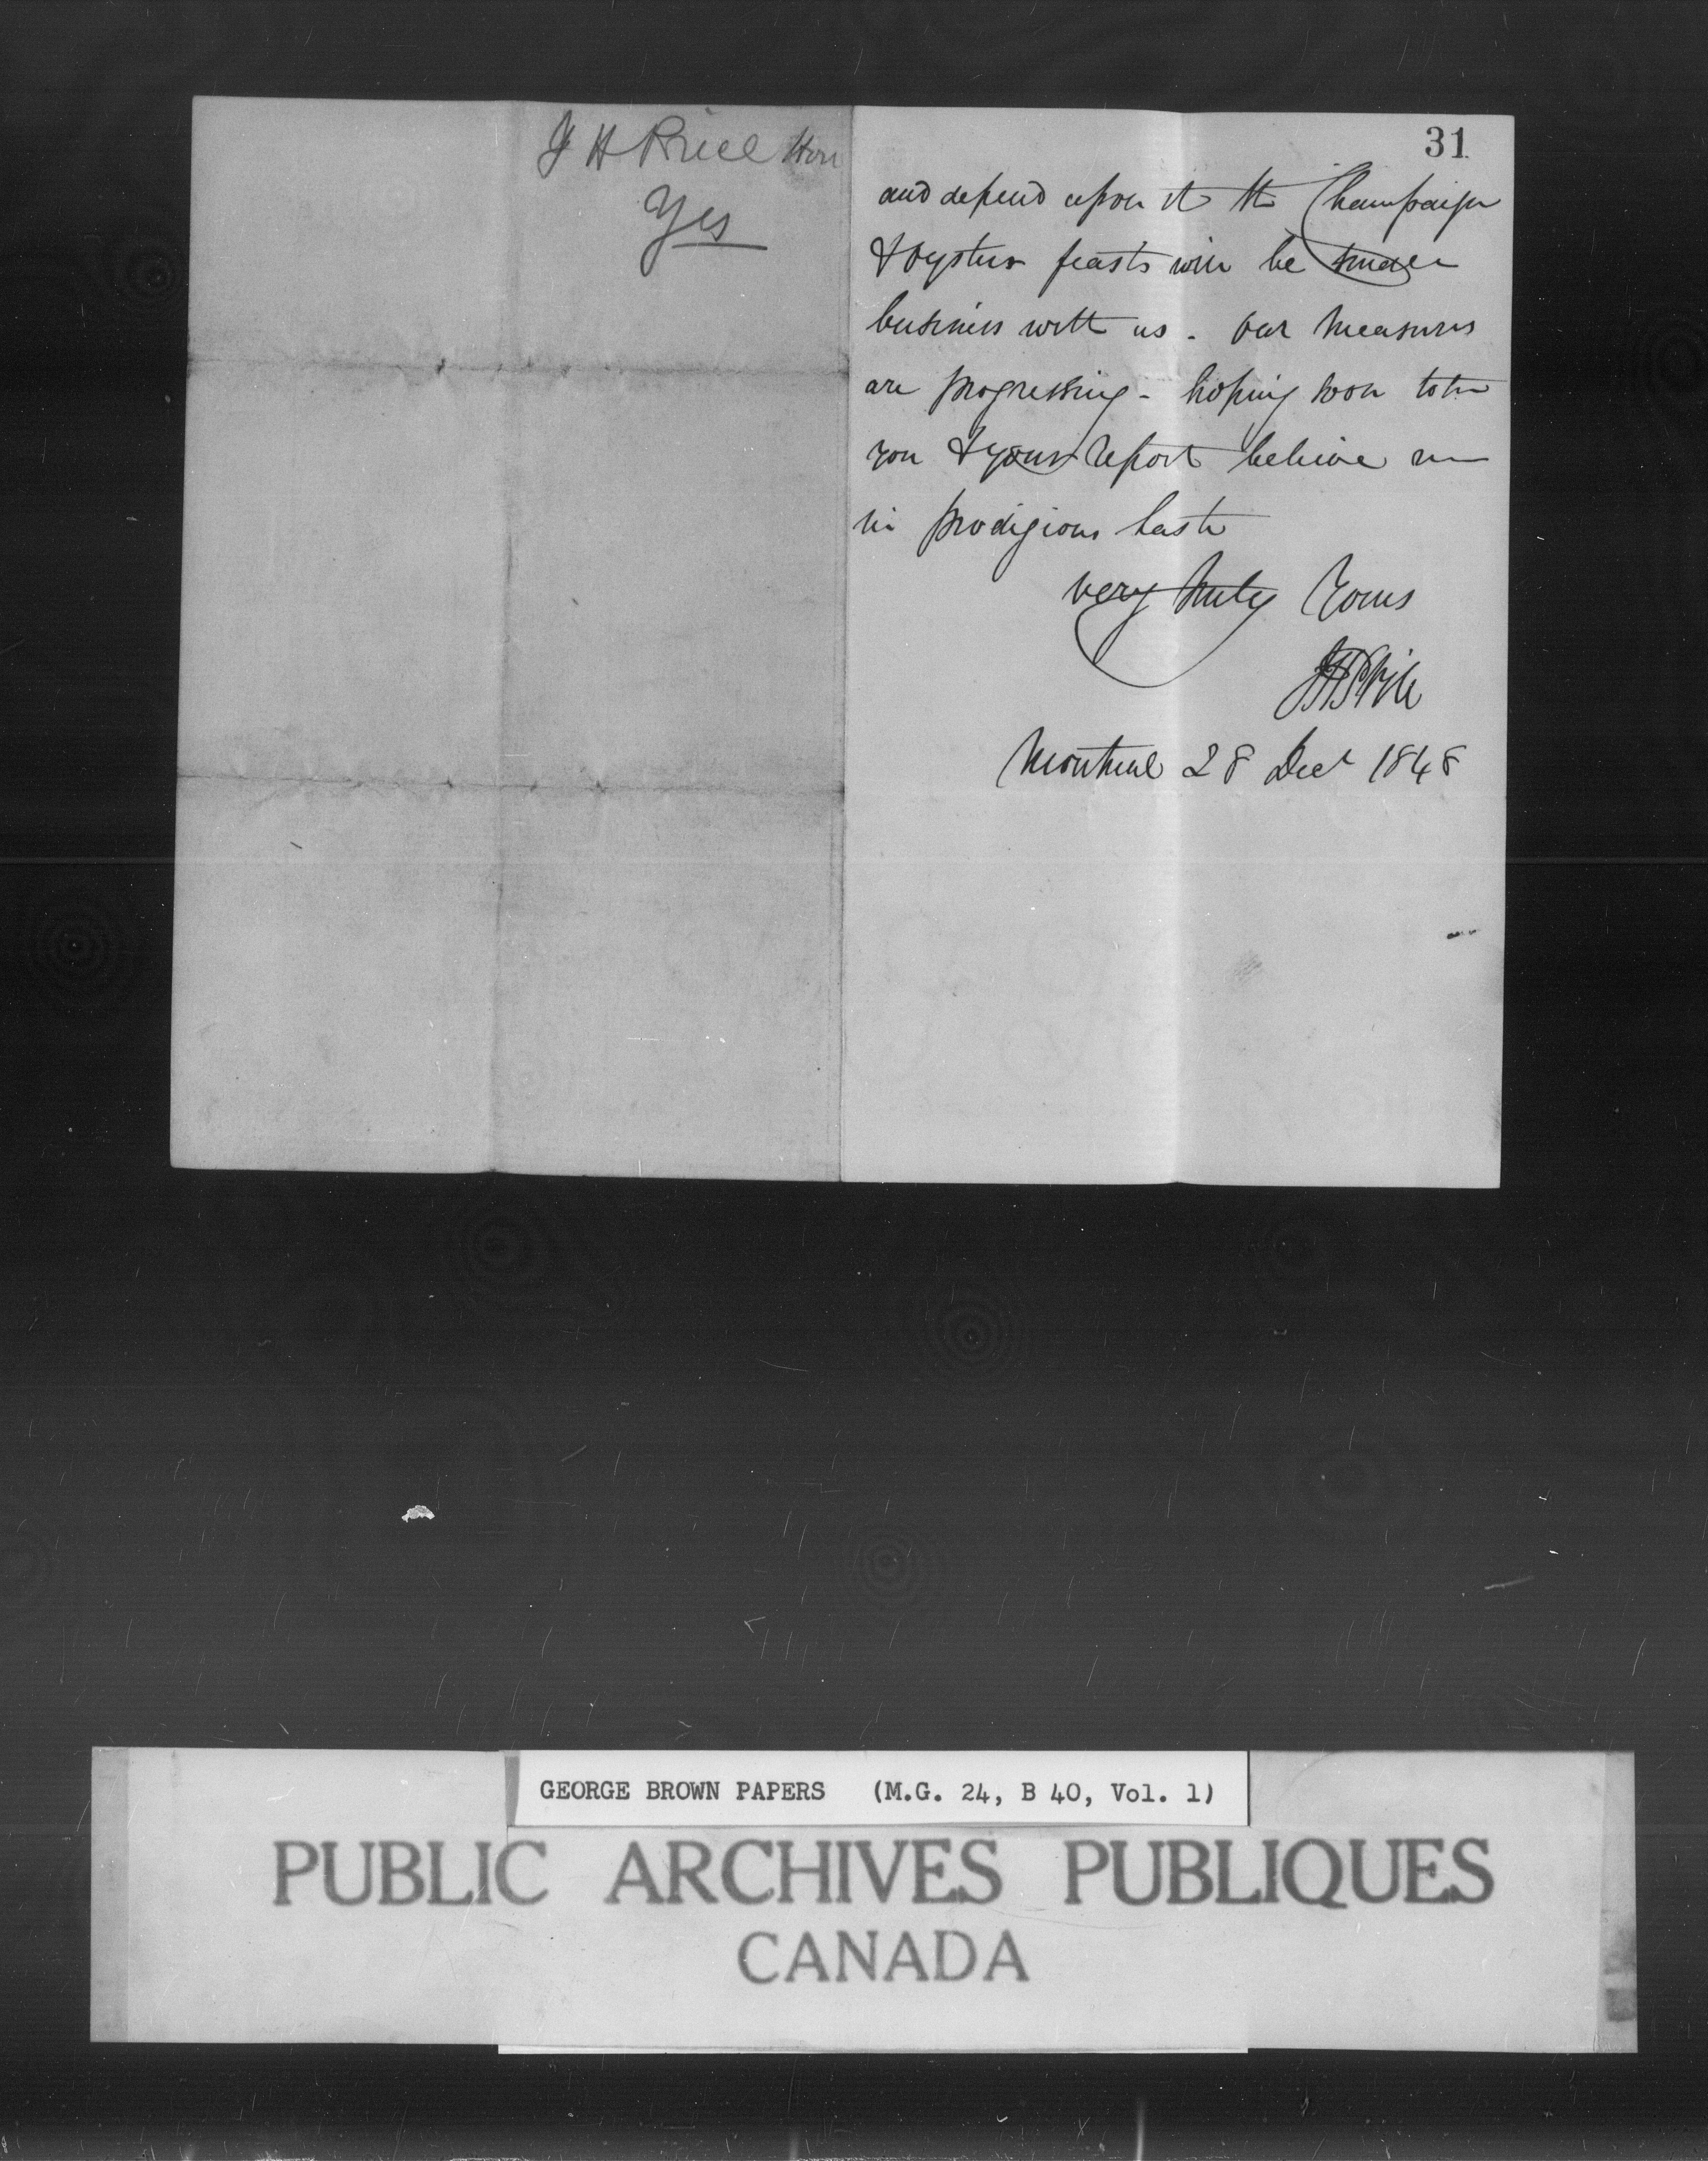 J H Price Hon
Yes
31
and depend upon it the Champaign
& Oyster feasts will be small
business with us - Our measures
are progressing - hoping soon to see
you & your report believe me
in prodigious haste
very truly Yours
JHPrice
Montreal 28 Decr 1848
GEORGE BROWN PAPERS (M.G. 24, B 40, Vol. 1)
PUBLIC ARCHIVES PUBLIQUES
CANADA